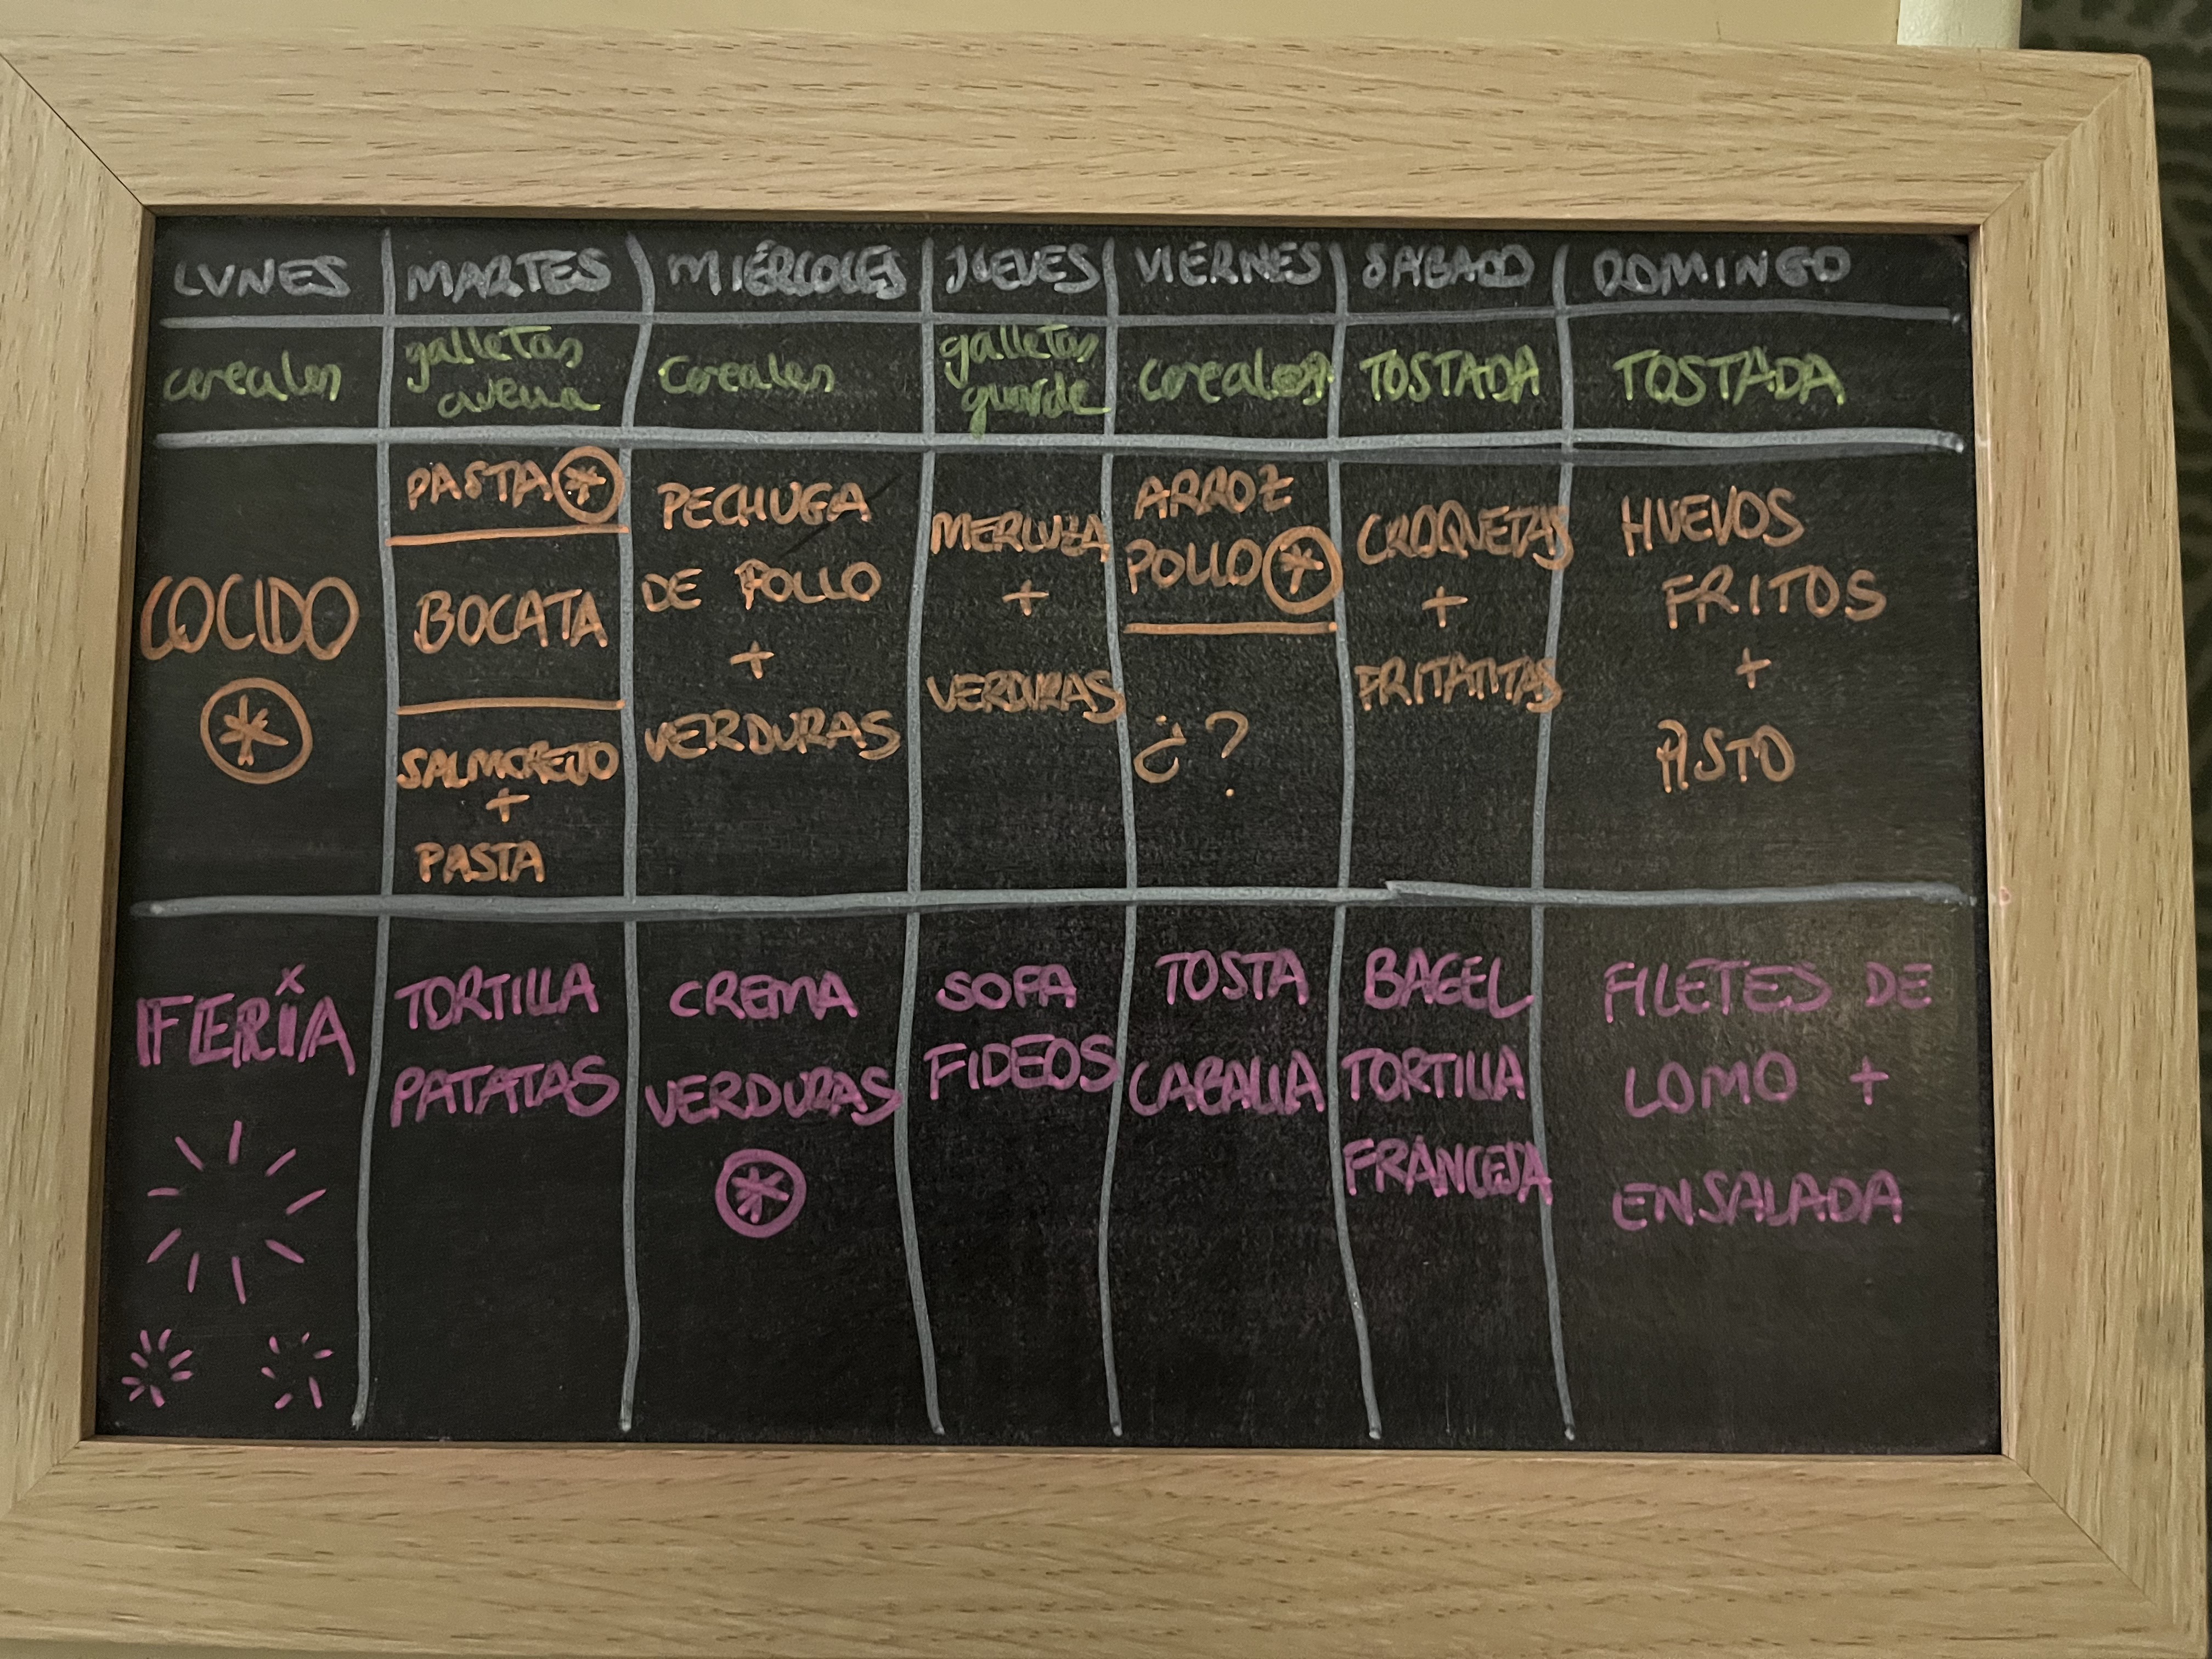 LUNES MARTES MIÉRCOLES JUEVES VIERNES SÁBADO DOMINGO
cereales
galletas
avena
cereales
galletas
cereales
TOSTADA
TOSTADA
COCIDO
PASTA
BOCATA
SALMOREJO
+
PASTA
PECHUGA
DE POLLO
+
VERDURAS
MERLUZA
+
VERDURAS
ARROZ
POLLO
¿?
CROQUETAS
+
HUEVOS
FRITOS
+
PISTO
FERIA
TORTILLA
PATATAS
CREMA
VERDURAS
SOPA
FIDEOS
TOSTA
CABALLA
BAGEL
TORTILLA
FRANCESA
FILETES DE
LOMO +
ENSALADA